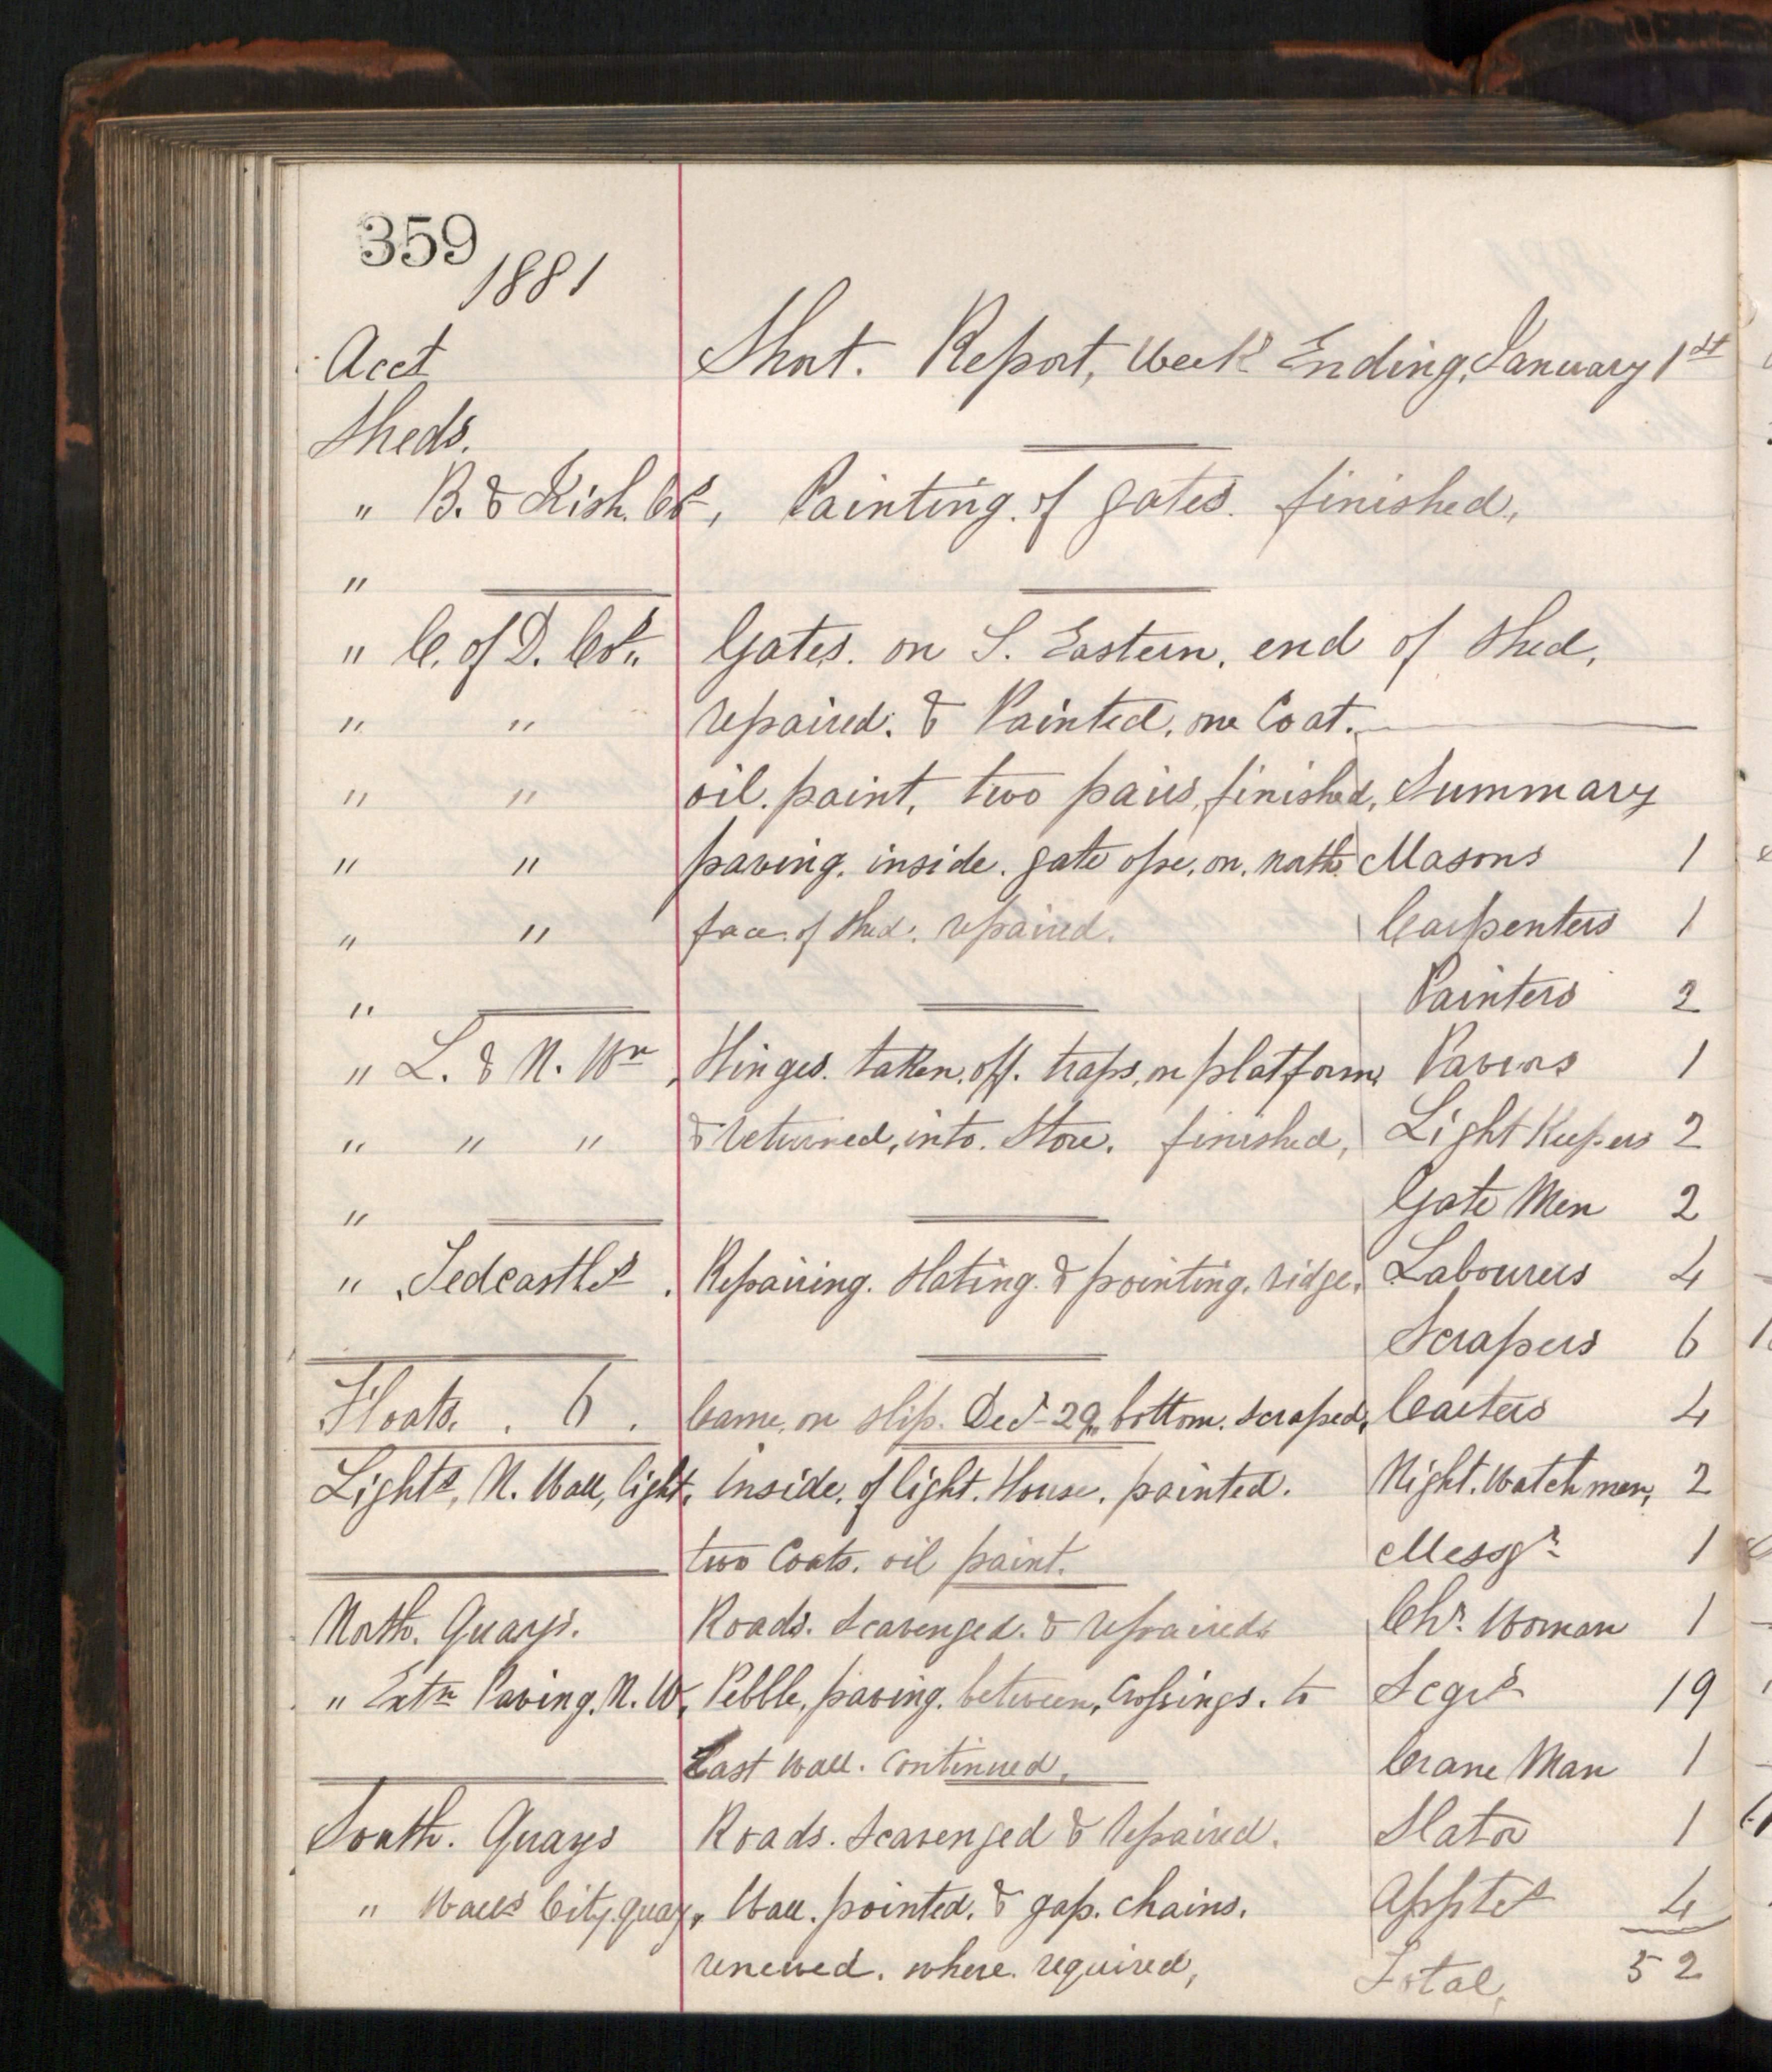 359
1881
Acct Short. Report, Week Ending, January 1st
Sheds.
" B. & Irish. Co's, Painting. of gates. finished,
"
" C. of D. Co's " Gates. on S. Eastern. end of Shed,
" " repaired. & Painted. one Coat.
" " oil. paint, two pairs, finished, Summary
" " paving. inside. gate ope. on. north. Masons 1
" " face. of Shed. repaired. Carpenters 1
" Painters 2
" L. & N. Wn, Hinges. taken. off. traps, on platform, Paviors 1
" " " & returned, into. Store. finished, Light Keepers 2
" Gate Men 2
" Tedcastle's. Repairing. Slating. & pointing. ridge. Labourers 4
Scrapers 6
Floats. . 6. Came. on slip. Decr 29, bottom. scraped, Carters 4
Lights, N. Wall, light, Inside. of light. House. painted. Night. Watchmen, 2
two Coats. oil paint. Messgr 1
North. Quays. Roads. Scavenged. & repaired. Chr. Woman 1
" Extn Paving. N. W, Pebble, paving. between, Crossings. to Scgrs 19
East Wall. Continued. Crane Man 1
South. Quays Roads. Scavenged & repaired. Slator 1
" Walls City. quay, Wall. pointed. & gap. chains. Apptes 4
renewed. where. required, Total, 52